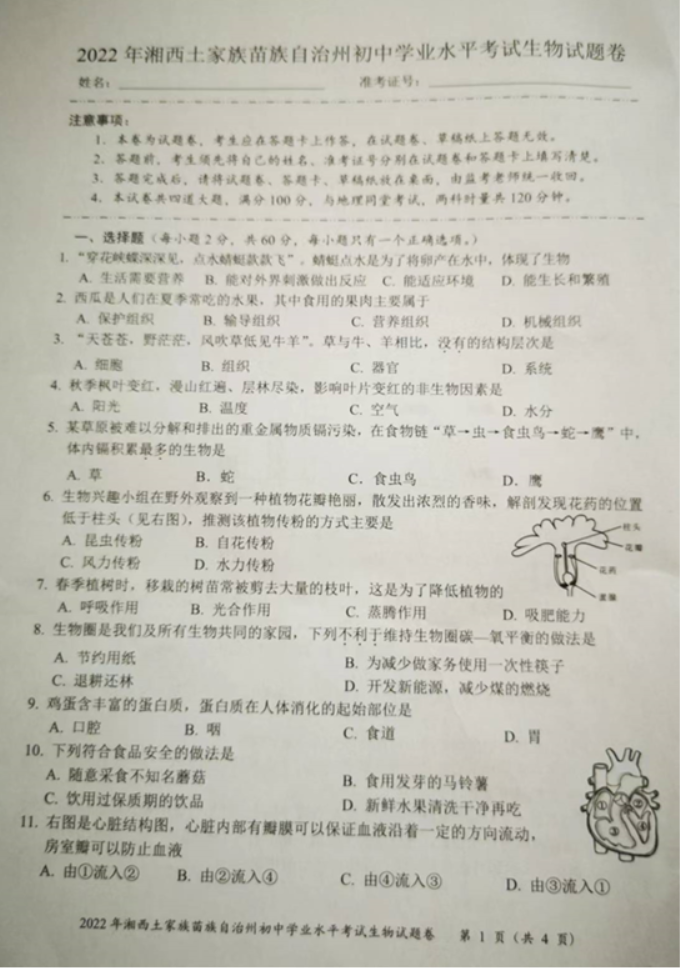 2022年湘西土家族苗族自治州初中学业水平考试生物试题卷
姓名： 准考证号：
注意事项：
1. 本卷为试题卷，考生应在答题卡上作答，在试题卷、草稿纸上答题无效。
2. 答题前，考生须先将自己的姓名、准考证号分别在试题卷和答题卡上填写清楚。
3. 答题完成后，请将试题卷、答题卡、草稿纸放在桌面，由监考老师统一收回。
4. 本试卷共四道大题，满分100分，与地理同堂考试，两科时量共120分钟。
一、选择题（每小题2分，共60分，每小题只有一个正确选项。）
1. “穿花蛱蝶深深见，点水蜻蜓款款飞”。蜻蜓点水是为了将卵产在水中，体现了生物
A. 生活需要营养 B. 能对外界刺激做出反应 C. 能适应环境 D. 能生长和繁殖
2. 西瓜是人们在夏季常吃的水果，其中食用的果肉主要属于
A. 保护组织 B. 输导组织 C. 营养组织 D. 机械组织
3. “天苍苍，野茫茫，风吹草低见牛羊”。草与牛、羊相比，没有的结构层次是
A. 细胞 B. 组织 C. 器官 D. 系统
4. 秋季枫叶变红，漫山红遍、层林尽染，影响叶片变红的非生物因素是
A. 阳光 B. 温度 C. 空气 D. 水分
5. 某草原被难以分解和排出的重金属物质镉污染，在食物链“草→虫→食虫鸟→蛇→鹰”中，
体内镉积累最多的生物是
A. 草 B. 蛇 C. 食虫鸟 D. 鹰
6. 生物兴趣小组在野外观察到一种植物花瓣艳丽，散发出浓烈的香味，解剖发现花药的位置
低于柱头（见右图），推测该植物传粉的方式主要是
A. 昆虫传粉 B. 自花传粉
C. 风力传粉 D. 水力传粉
柱头
花瓣
花药
7. 春季植树时，移栽的树苗常被剪去大量的枝叶，这是为了降低植物的
A. 呼吸作用 B. 光合作用 C. 蒸腾作用 D. 吸肥能力
8. 生物圈是我们及所有生物共同的家园，下列不利于维持生物圈碳—氧平衡的做法是
A. 节约用纸 B. 为减少做家务使用一次性筷子
C. 退耕还林 D. 开发新能源，减少煤的燃烧
9. 鸡蛋含丰富的蛋白质，蛋白质在人体消化的起始部位是
A. 口腔 B. 咽 C. 食道 D. 胃
10. 下列符合食品安全的做法是
A. 随意采食不知名蘑菇 B. 食用发芽的马铃薯
C. 饮用过保质期的饮品 D. 新鲜水果清洗干净再吃
11. 右图是心脏结构图，心脏内部有瓣膜可以保证血液沿着一定的方向流动，
房室瓣可以防止血液
A. 由①流入② B. 由②流入④ C. 由④流入③ D. 由③流入①
2022年湘西土家族苗族自治州初中学业水平考试生物试题卷 第1页（共4页）